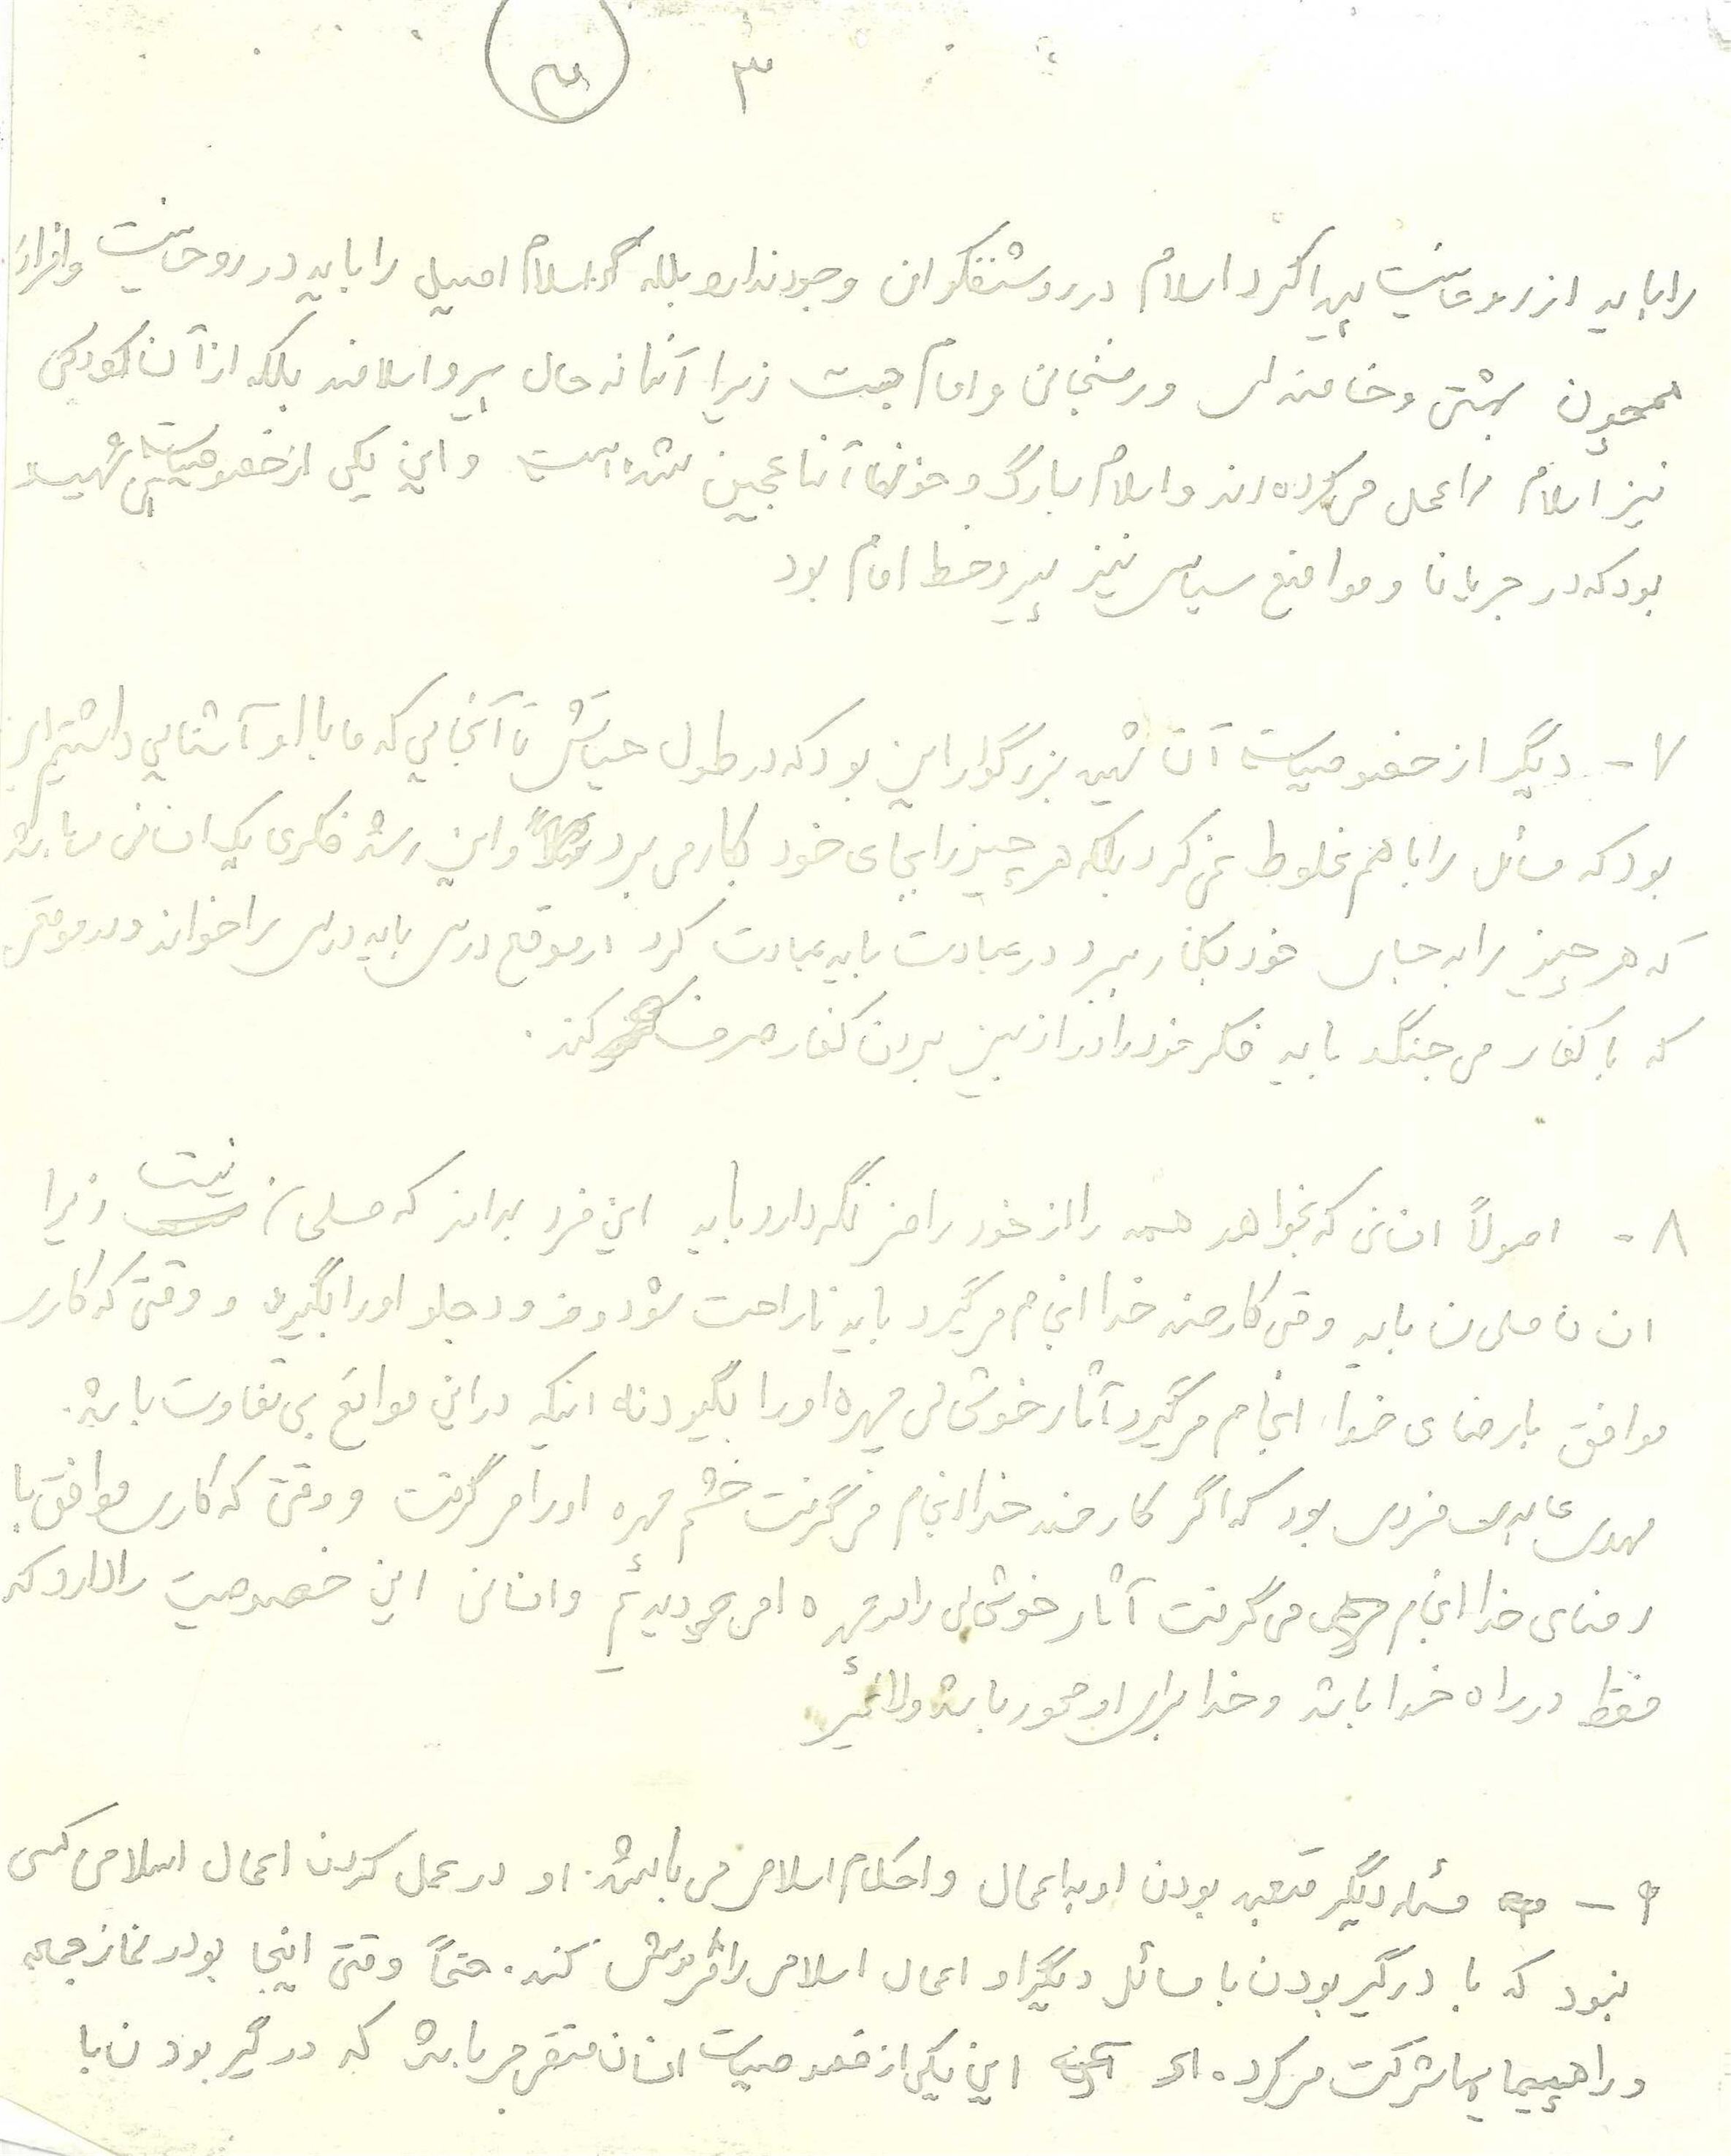 ۳
را باید از روحانیت پیدا کرد اسلام در روشنفکران وجود ندارد بلکه اسلام اصیل را باید در روحانیت و افراد
همچون بهشتی و خامنه ای و رفسنجانی و امام جست زیرا آنها نه حال پیرو اسلامند بلکه از آن کودکی
نیز اسلام را عمل می کرده اند و اسلام با رگ و خون آنها عجین شده است و این یکی از خصوصیات شهید
بود که در جریانات و مواضع سیاسی نیز پیرو خط امام بود
۷ - دیگر از خصوصیات آن شهید بزرگوار این بود که در طول حیاتش تا آنجایی که ما با او آشنایی داشتیم این
بود که مسائل را با هم مخلوط نمی کرد بلکه هر چیز را بجای خود بکار می برد و این رشد فکری یک انسان می باشد
که هر چیز را به جای خود بکار ببرد در عبادت باید عبادت کرد در موقع درس باید درس را خواند و در موقعی
که با کفار می جنگد باید فکر خود را در از بین بردن کفار صرف کند.
۸ - اصولاً انسانی که بخواهد همه را از خود راضی نگه دارد باید این فرد بداند که مسلمان نیست زیرا
انسان مسلمان باید وقتی کار ضد خدا انجام می گیرد باید ناراحت شود و زود جلو او را بگیرد و وقتی که کاری
موافق با رضای خدا انجام می گیرد آثار خوشحالی چهره او را بگیرد نه اینکه در این مواقع بی تفاوت باشد.
مهدی عابدی فردی بود که اگر کار ضد خدا انجام می گرفت خشم چهره او را می گرفت و وقتی که کاری موافق با
رضای خدا انجام می گرفت آثار خوشحالی را در چهره اش می دیدیم و انسانی این خصوصیت را دارد که
فقط در راه خدا باشد و خدا برای او محور باشد و لاغیر
۹ - مسئله دیگر متعبد بودن او به اعمال و احکام اسلامی می باشد. او در عمل کردن اعمال اسلامی کسی
نبود که با درگیر بودن با مسائل دیگر او اعمال اسلامی را فراموش کند. حتماً وقتی اینجا بود در نماز جمعه
و راهپیمایی ها شرکت می کرد. این یکی از خصوصیات انسان متقی می باشد که درگیر بودن با